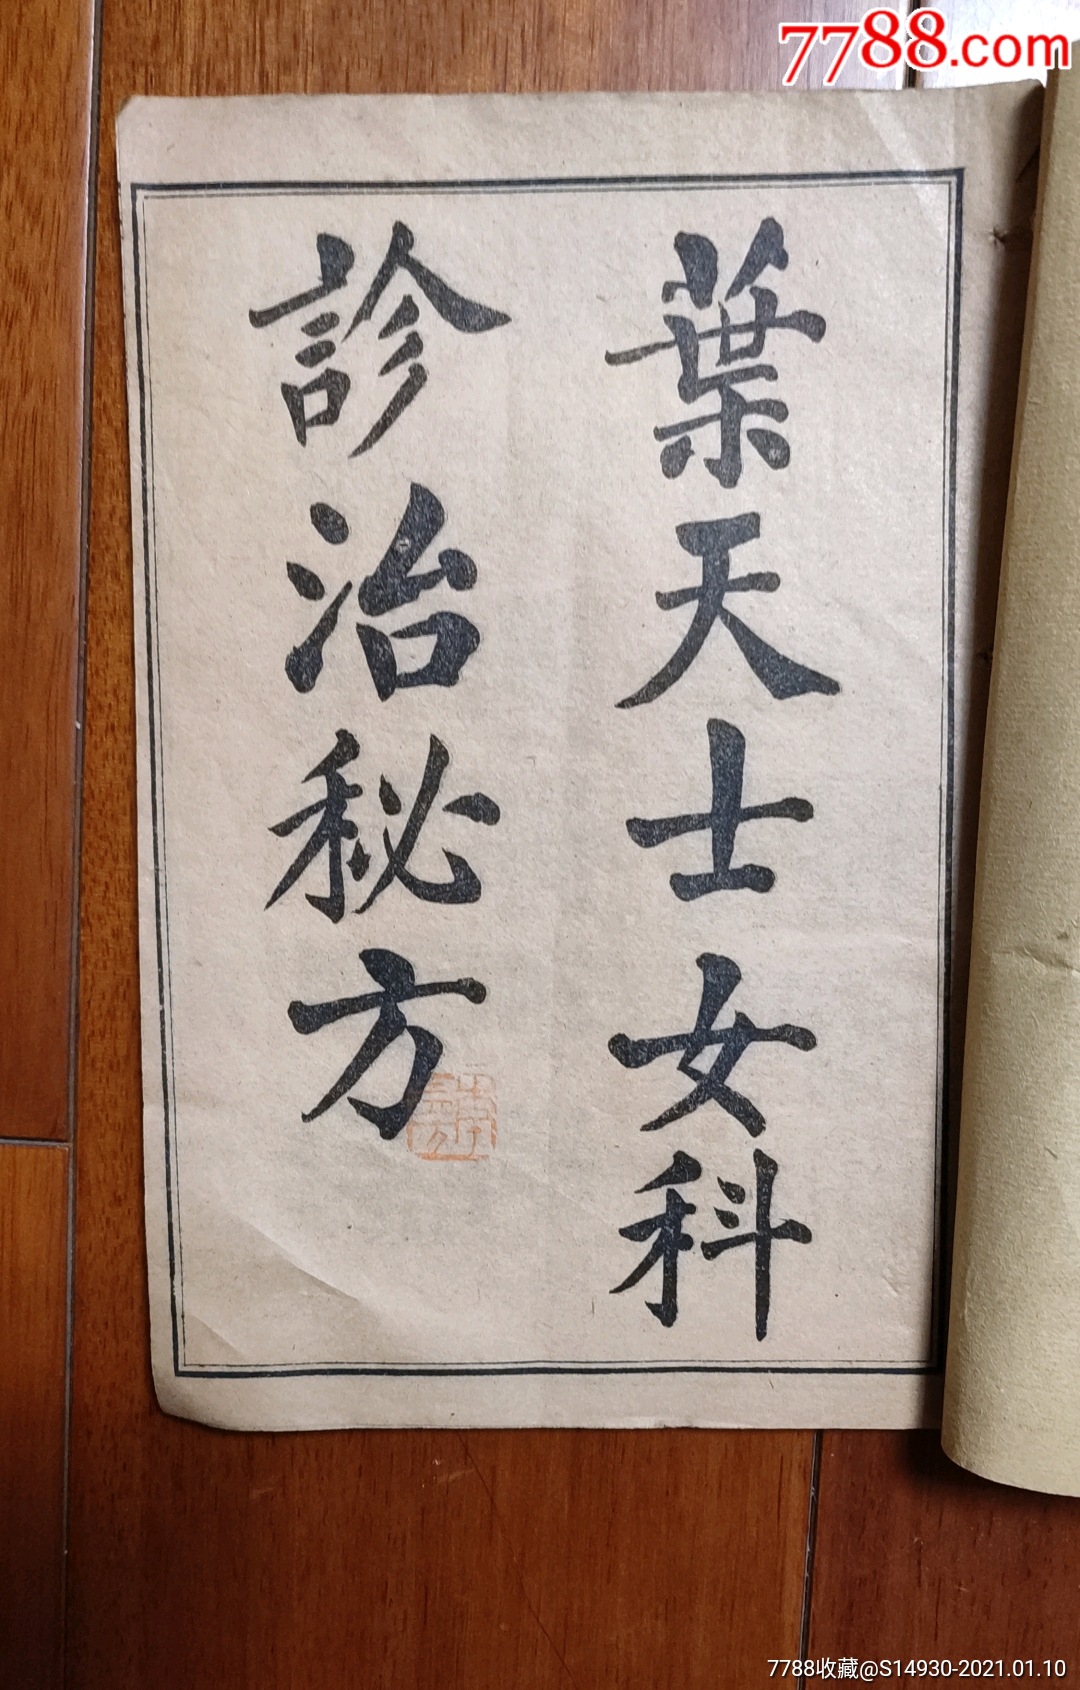 7788.com
葉天士女科
診治秘方
7788收藏@S14930-2021.01.10